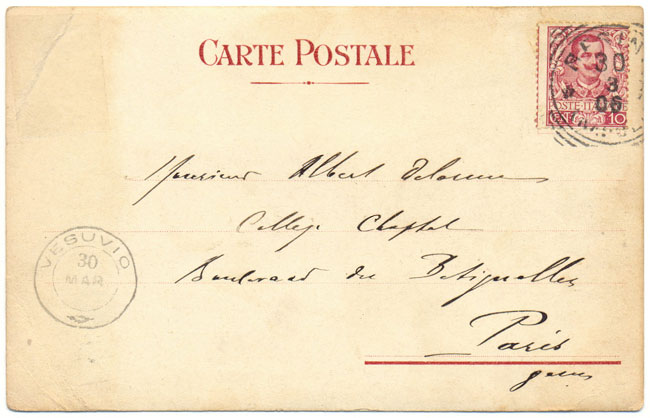 CARTE POSTALE
30
3
06
POSTE ITAL
10
Monsieur Albert
Collège Chaptal
Boulevard des Batignolles
Paris
VESUVIO
30
MAR